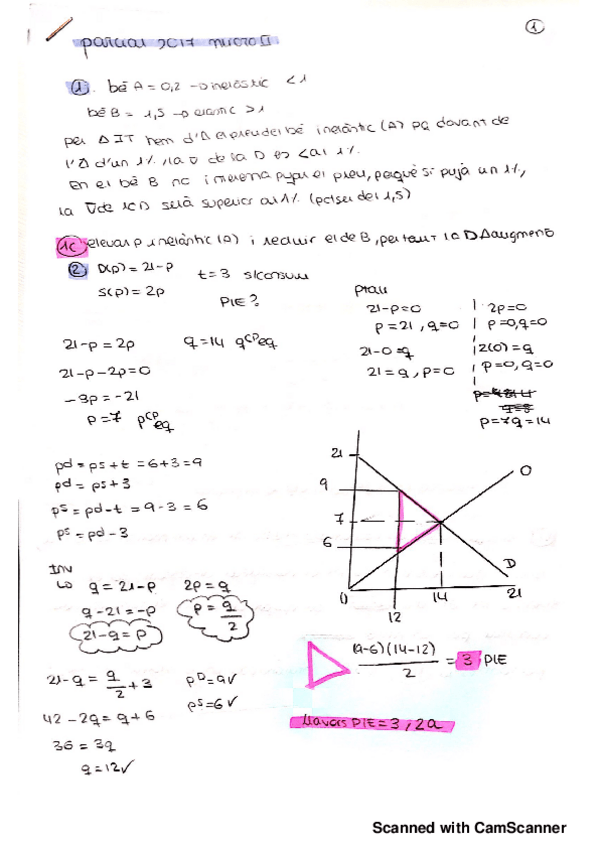 1
parcial 2017 micro II
1. bé A = 0,2 → inelàstic < 1
bé B = 1,5 → elàstic > 1
per Δ IT hem d'Δ el preu del bé inelàstic (A) pq davant de
l'Δ d'un 1%, la ∇ de la D és < al 1%.
En el bé B no interessa pujar el preu, perquè si pujà un 1%,
la ∇ de la D serà superior al 1% (potser de 1,5)
1c elevar p inelàstic (A) i reduir el de B, per tant la D augmenta
2 D(p) = 21-p t = 3 s/consum
S(p) = 2p PIE?
21-p = 2p q = 14 qCPeq
21-p-2p = 0
-3p = -21
p = 7 pCPeq
21-p=0
p = 21, q=0
21-0=q
21=q, p=0
2p=0
p=0, q=0
2(0)=q
p=0, q=0
p=7 q=14
pd = ps + t = 6+3 = 9
pd = ps + 3
ps = pd - t = 9-3 = 6
ps = pd - 3
INV
↳ q = 21-p 2p = q
q-21 = -p p = q/2
21-q = p
21-q = q/2 + 3 pD = 9✓
42-2q = q+6 pS = 6✓
36 = 3q
q = 12✓
21
9
7
6
0
12
14
21
O
D
(9-6)(14-12)/2 = 3 PIE
llavors PIE = 3, 2a
Scanned with CamScanner